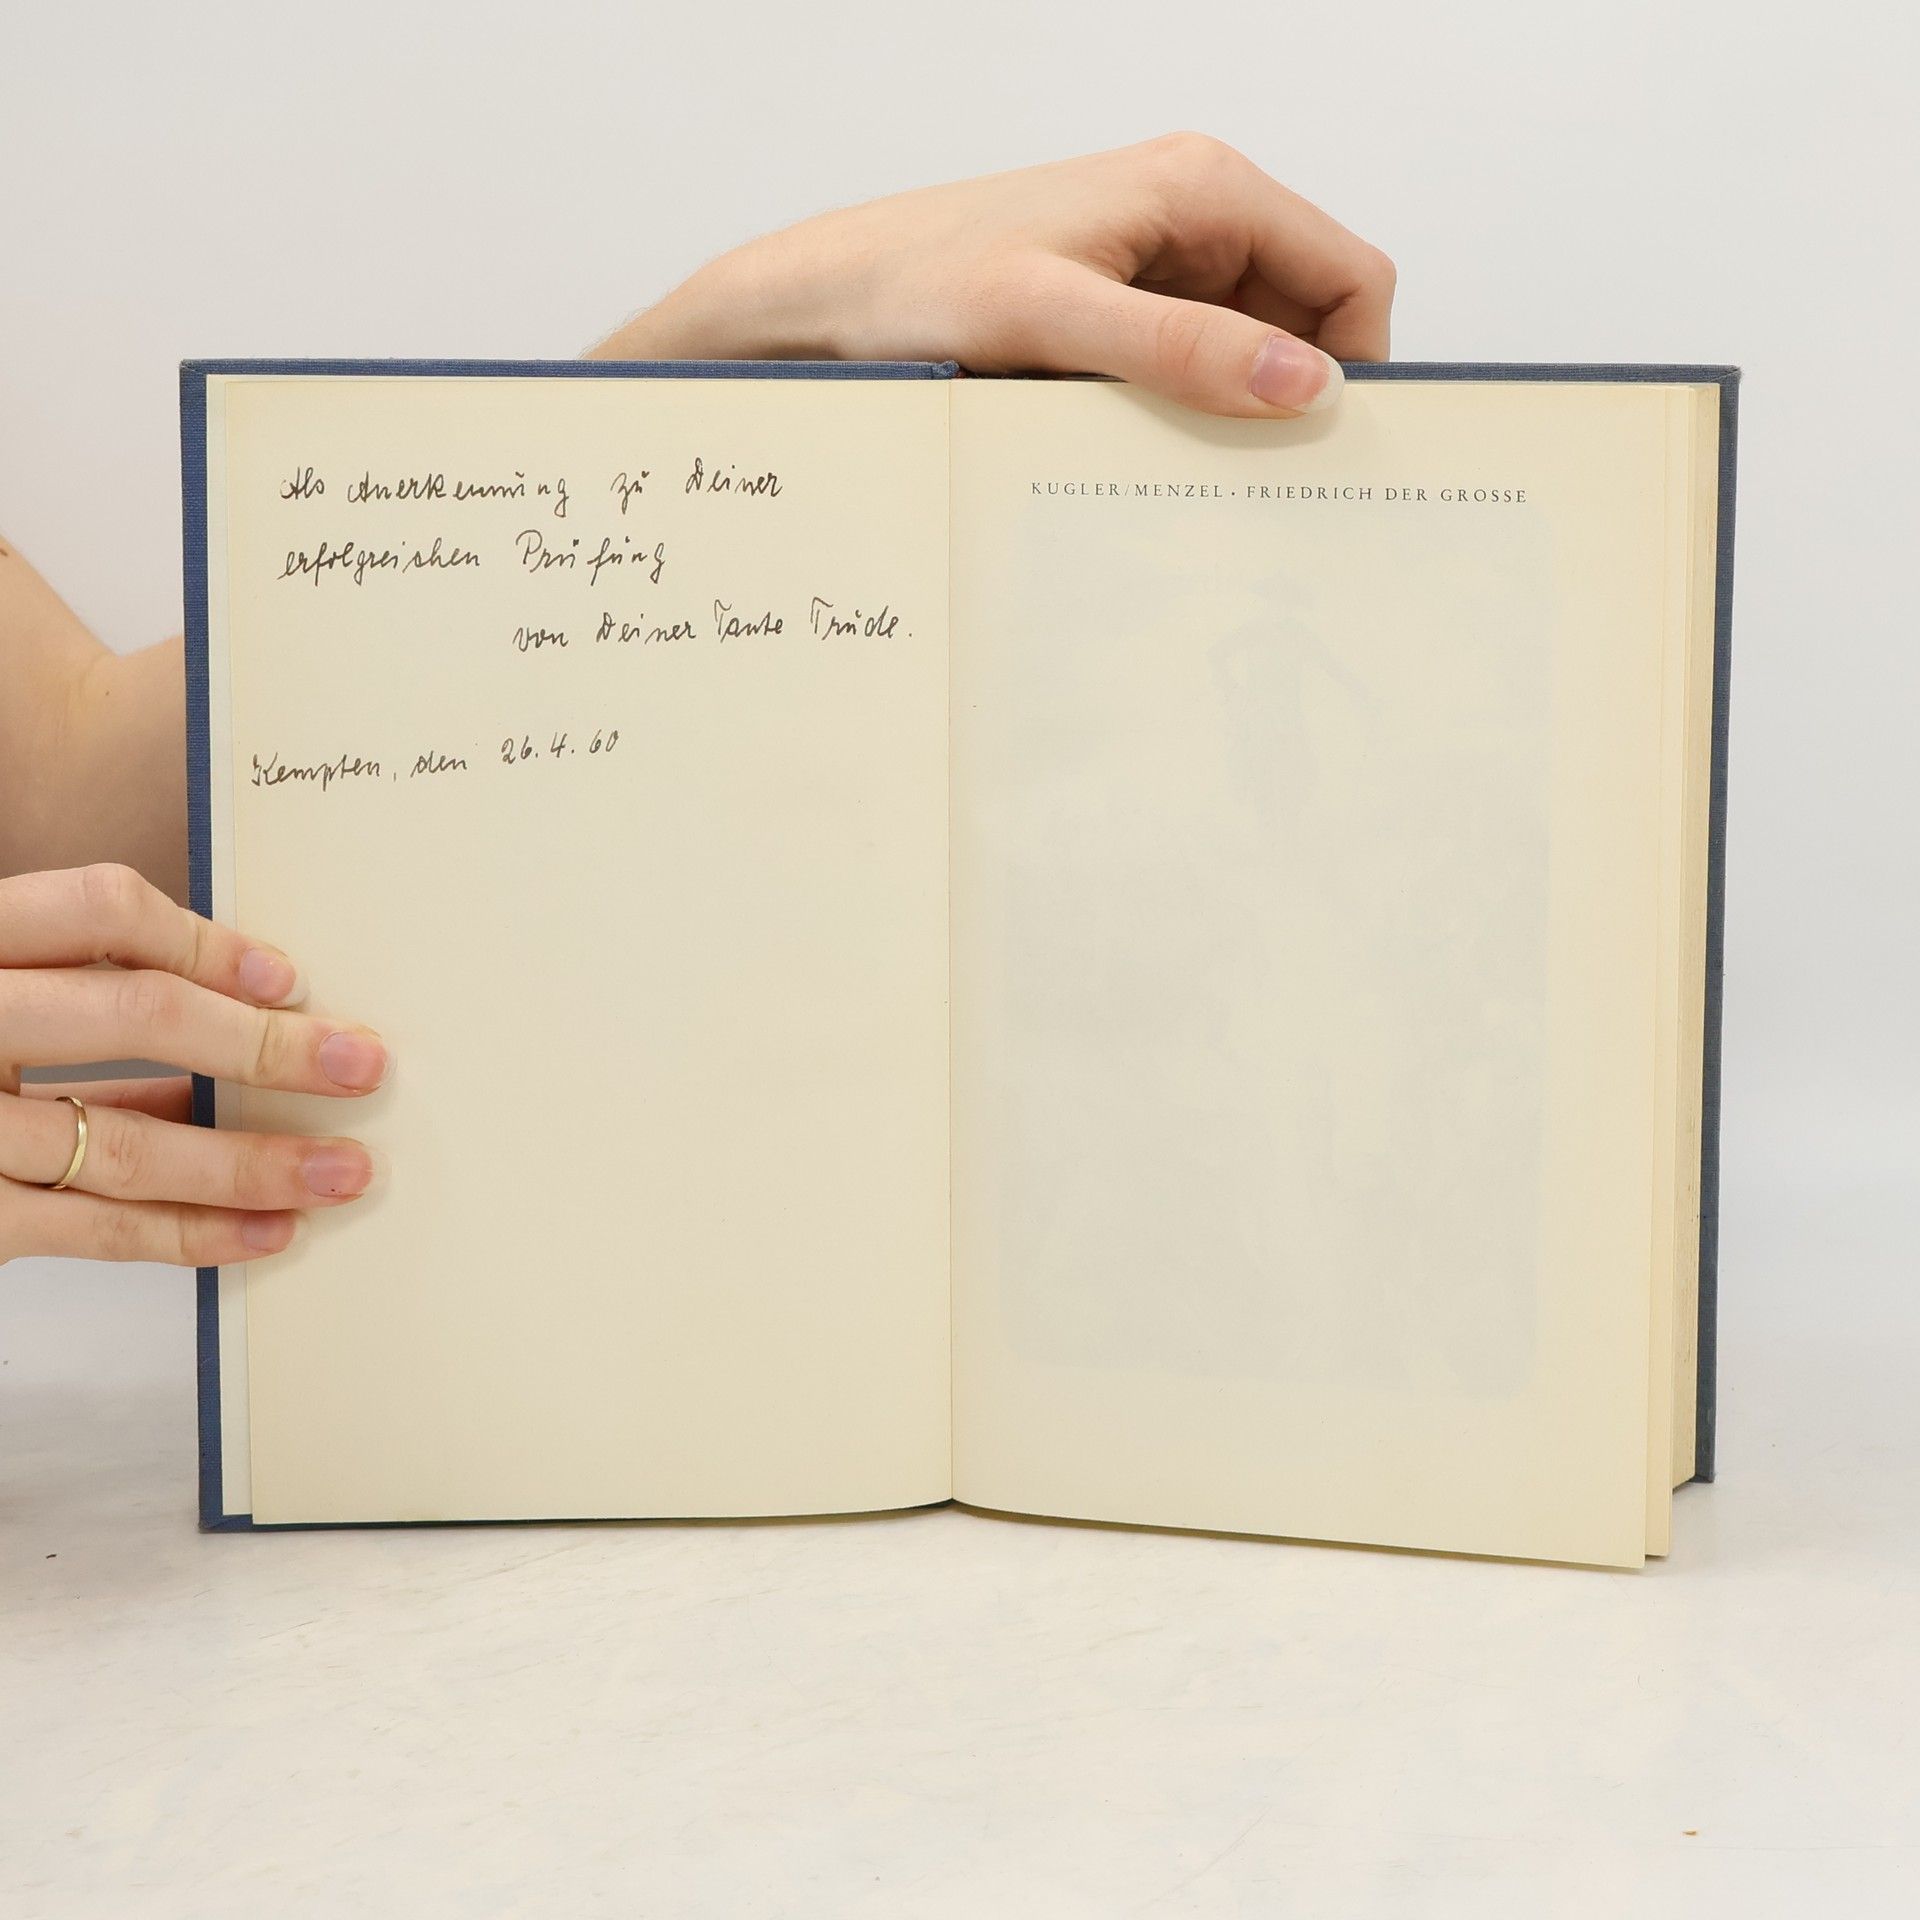 Als Anerkennung zu Deiner
erfolgreichen Prüfung
von Deiner Tante Trude.
Kempten, den 26.4.60
KUGLER/MENZEL · FRIEDRICH DER GROSSE